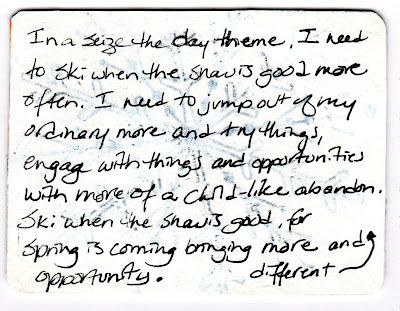 In a seize the day theme, I need
to ski when the snow is good more
often. I need to jump out of my
ordinary more and try things,
engage with things and opportunities
with more of a child-like abandon.
Ski when the snow is good, for
spring is coming bringing more and
opportunity. different